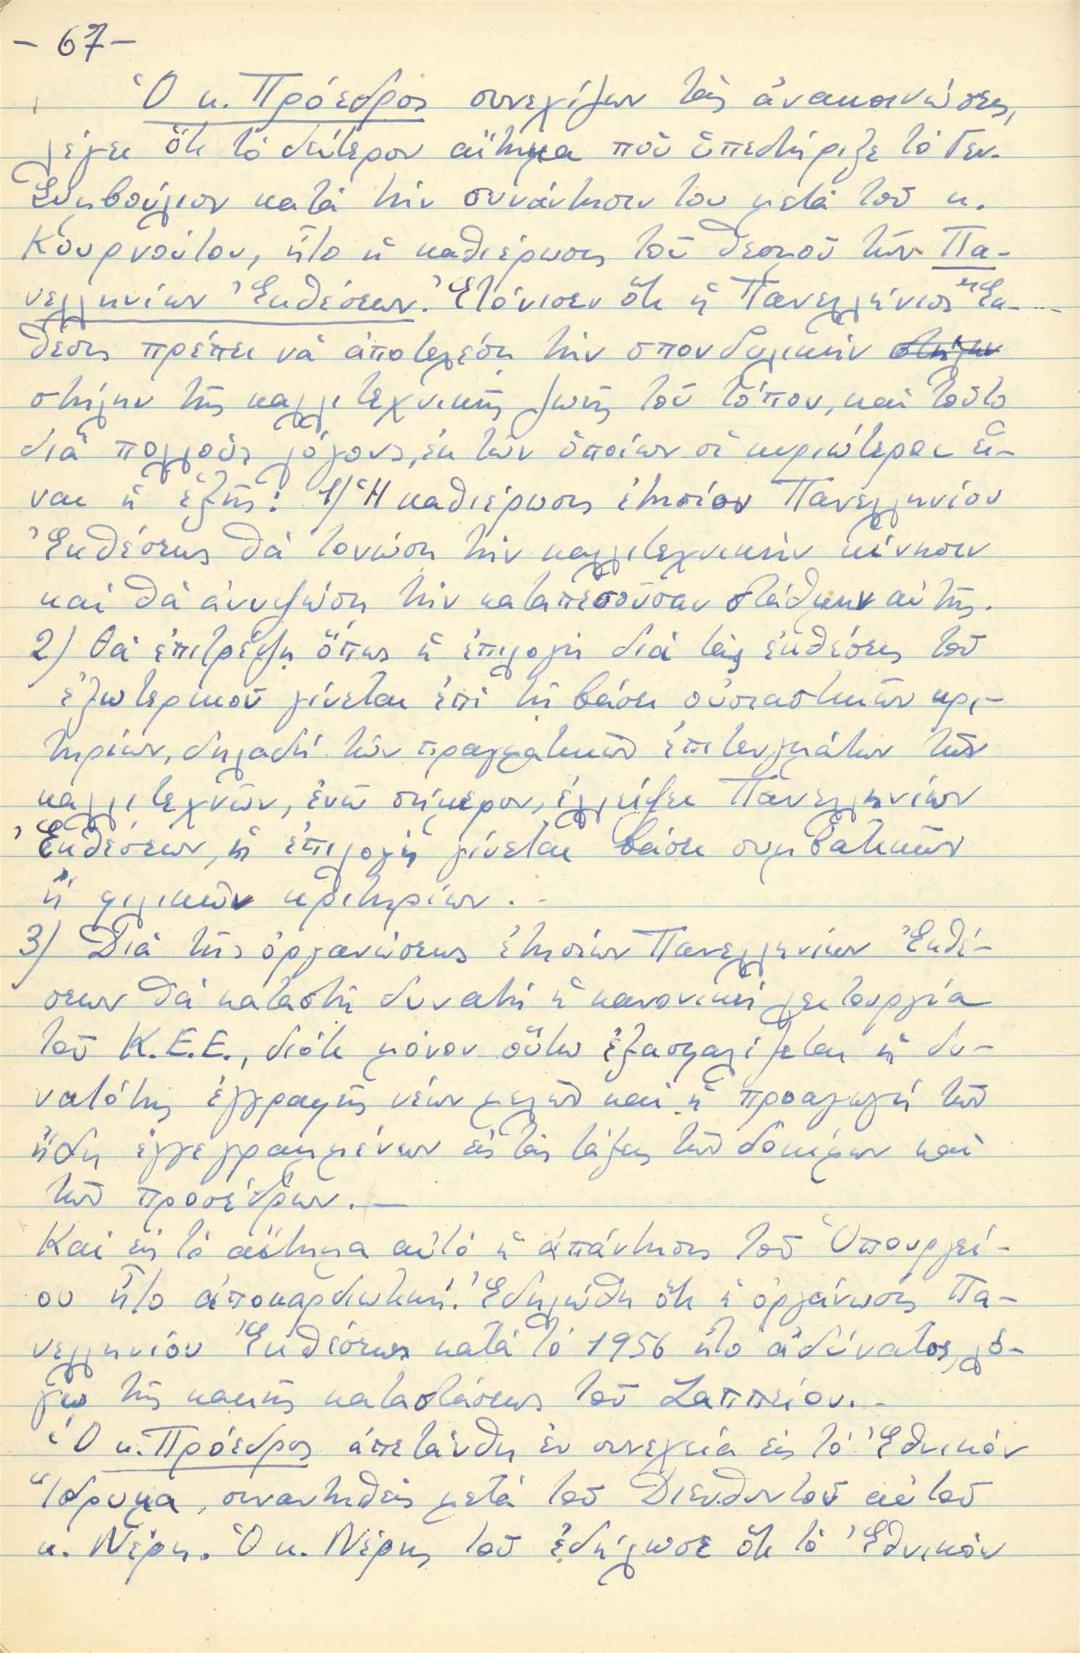 - 67 -
Ὁ κ. Πρόεδρος συνεχίζων τὰς ἀνακοινώσεις,
λέγει ὅτι τὸ δεύτερον αἴτημα ποὺ ὑπεστήριξε τὸ Γεν.
Συμβούλιον κατὰ τὴν συνάντησίν του μετὰ τοῦ κ.
Κουρνούτου, ἦτο ἡ καθιέρωσις τοῦ θεσμοῦ τῶν Πα-
νελληνίων Ἐκθέσεων. Ἐτόνισεν ὅτι ἡ Πανελλήνιος Ἔκ-
θεσις πρέπει νὰ ἀποτελέσῃ τὴν σπονδυλικὴν στήλην
στήλην τῆς καλλιτεχνικῆς ζωῆς τοῦ τόπου, καὶ τοῦτο
διὰ πολλοὺς λόγους, ἐκ τῶν ὁποίων οἱ κυριώτεροι εἶ-
ναι ἡ ἑξῆς: 1) Ἡ καθιέρωσις ἐτησίου Πανελληνίου
Ἐκθέσεως θὰ τονώσῃ τὴν καλλιτεχνικὴν κίνησιν
καὶ θὰ ἀνυψώσῃ τὴν καταπεσοῦσαν στάθμην αὐτῆς.
2) Θὰ ἐπιτρέψῃ ὅπως ἡ ἐπιλογὴ διὰ τὰς ἐκθέσεις τοῦ
ἐξωτερικοῦ γίνεται ἐπὶ τῇ βάσει οὐσιαστικῶν κρι-
τηρίων, δηλαδὴ τῶν πραγματικῶν ἐπιτευγμάτων τῶν
καλλιτεχνῶν, ἐνῶ σήμερον, ἐλλείψει Πανελληνίων
Ἐκθέσεων, ἡ ἐπιλογὴ γίνεται βάσει συμβατικῶν
ἢ φιλικῶν κριτηρίων. -
3) Διὰ τῆς ὀργανώσεως ἐτησίων Πανελληνίων Ἐκθέ-
σεων θὰ καταστῇ δυνατὴ ἡ κανονικὴ λειτουργία
τοῦ Κ.Ε.Ε., διότι μόνον οὕτω ἐξασφαλίζεται ἡ δυ-
νατότης ἐγγραφῆς νέων μελῶν καὶ ἡ προαγωγὴ τῶν
ἤδη ἐγγεγραμμένων εἰς τὰς τάξεις τῶν δοκίμων καὶ
τῶν προσέδρων. -
Καὶ εἰς τὸ αἴτημα αὐτὸ ἡ ἀπάντησις τοῦ Ὑπουργεί-
ου ἦτο ἀποκαρδιωτική. Ἐδηλώθη ὅτι ἡ ὀργάνωσις Πα-
νελληνίου Ἐκθέσεως κατὰ τὸ 1956 ἦτο ἀδύνατος, λό-
γῳ τῆς κακῆς καταστάσεως τοῦ Ζαππείου. -
Ὁ κ. Πρόεδρος ἀπετάνθη ἐν συνεχείᾳ εἰς τὸ Ἐθνικὸν
Ἵδρυμα, συναντηθεὶς μετὰ τοῦ Διευθυντοῦ αὐτοῦ
κ. Νέρη. Ὁ κ. Νέρης τοῦ ἐδήλωσε ὅτι τὸ Ἐθνικὸν